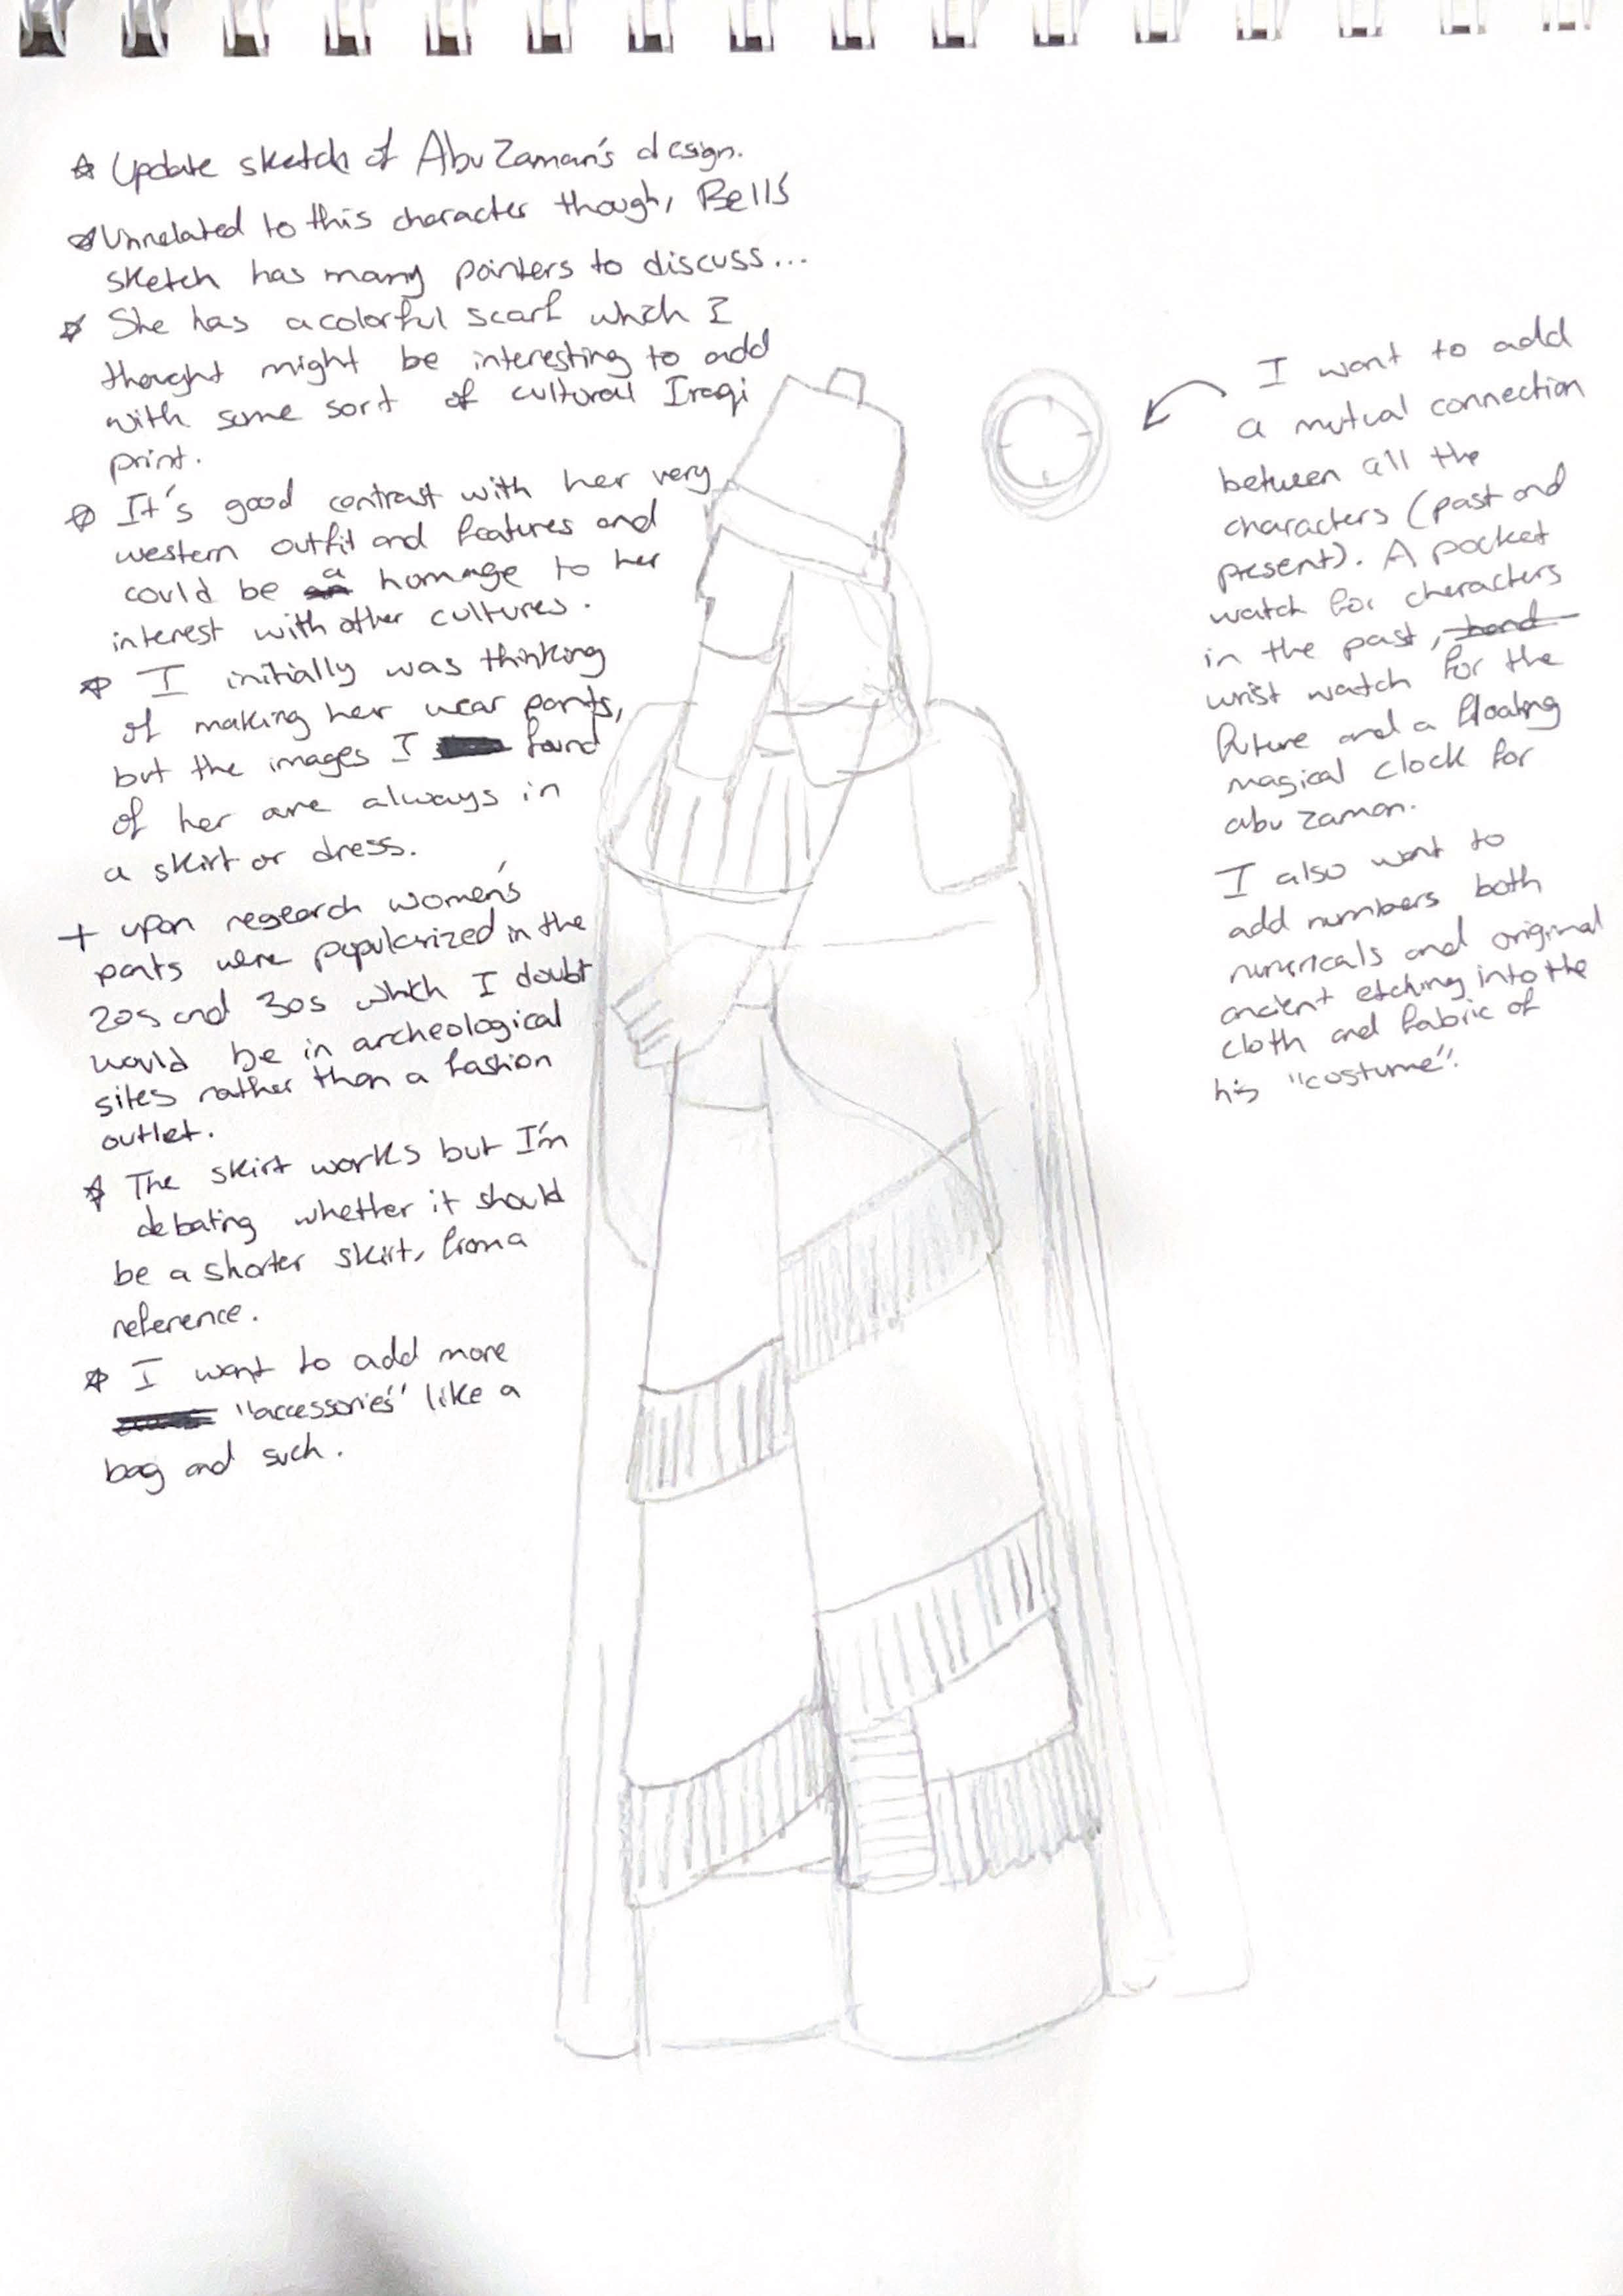 ☆ Update sketch of Abu Zaman's design.
☆ Unrelated to this character though, Bell's
sketch has many pointers to discuss...
☆ She has a colorful scarf which I
thought might be interesting to add
with some sort of cultural Iraqi
print.
☆ It's good contrast with her very
western outfit and features and
could be a homage to her
interest with other cultures.
☆ I initially was thinking
of making her wear pants,
but the images I found
of her are always in
a skirt or dress.
+ upon research women's
pants were popularized in the
20s and 30s which I doubt
would be in archeological
sites rather than a fashion
outlet.
☆ The skirt works but I'm
debating whether it should
be a shorter skirt, from a
reference.
☆ I want to add more
"accessories" like a
bag and such.
I want to add
a mutual connection
between all the
characters (past and
present). A pocket
watch for characters
in the past, hand
wrist watch for the
future and a floating
magical clock for
abu zaman.
I also want to
add numbers both
numericals and original
ancient etching into the
cloth and fabric of
his "costume".